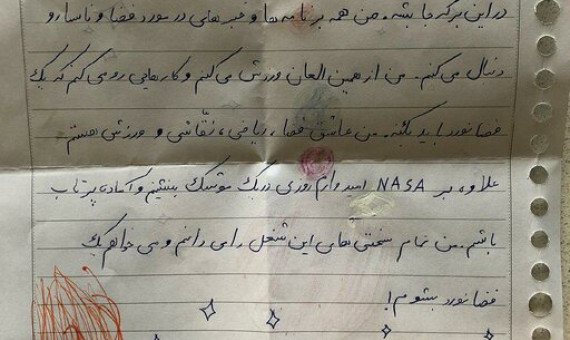 در این برگه جا بشه. من همه برنامه ها و خبر های در مورد فضا و ناسا رو
دنبال می کنم. من از همین العان ورزش می کنم و کارهایی رو می کنم که یک
فضانورد باید بکنه. من عاشق فضا، ریاضی، نقّاشی و ورزش هستم.
علاوه بر NASA امیدوارم روزی در یک موشک بنشینم و آماده پرتاب
باشم. من تمام سختی های این شغل رامی دانم ومی خواهم یک
فضانورد بشوم!